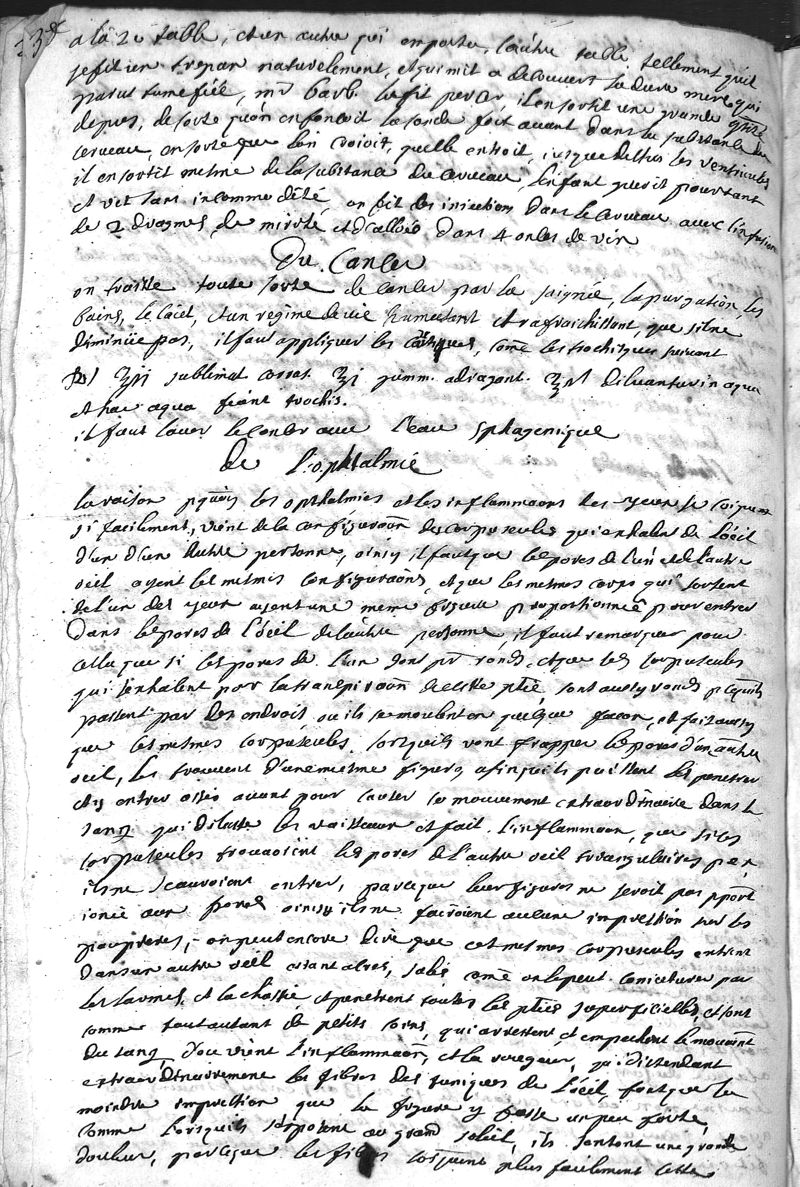 238
a la 2e table, et un autre qui emporta, l'autre table, tellement quil
se fit un trepan naturelement, et qui mit a decouvert la dure mere qui
parut tumefiée, mr barb. la fit percer, il en sortit une grande qtité
de pus, de sorte qu'on enfoncoit la sonde fort avant dans la substance du
cerveau, en sorte que l'on voioit, quelle entroit, jusque dessus les ventricules
il en sortit mesme de la substance du cerveau, l'enfant guerit pourtant
et vit sans incommodité, on fit des iniections dans le cerveau avec l'infusion
de 2 dragmes de mirrhe, et d'alloes, dans 4 onces de vin
Du Cancer
on traitte toute sorte de cancer par la saignée, la purgation, les
bains, le laict, et un regime de vie humectant et rafraichissant, que sil ne
diminüe pas, il faut appliquer les caustiques, come les trochisques suivant
sublimat. corros. gumm. adragant. diluantur in aqua
et hac aqua fiant trochis.
il faut laver le cancer avec l'eau sphagenique
De l'ophtalmie
la raison pquoy les opthalmies et les inflammaons des yeux se
si facilement, vient de la configuraon des corpuscules qui exhalent de l'oeil
d'un d'un autre personne, ainsy il faut que les pores de l'un et de l'autre
oeil ayent les mesmes configuraons, et que les mesmes corps qui sortent
de l'un des yeux ayent une meme figure proportionnée pour entrer
dans les pores de l'oeil de l'autre personne, il faut remarquer pour
cella que si les pores de l'un sont pr ronds, et que les corpuscules
qui s'exhalent par la transpiraon de cette ptie, sont aussy ronds pcequils
passent par des endroits ou ils se moulent en quelque facon, et fait aussy
que les mesmes corpuscules, lorsquils vont frapper les pores d'un autre
oeil, les trouvent d'une mesme figure, afin quils puissent les penetrer
et y entrer assés avant pour causer ce mouvement extraordinaire dans le
sang qui dilatte les vaisseaux et fait l'inflammaon, que si les
corpuscules trouvoient les pores de l'autre oeil triangulaires
ils ne scauroient entrer, parceque leur figure ne seroit pas pport
ionée aux pores ainsy ils ne fairoient aucune impression sur les
paupieres, on peut encore dire que ces mesmes corpuscules entrent
dans un autre oeil estant acres, salés come on le peut coniecturer par
les larmes, et la chassie et penetrent toutes les pties superficielles, et sont
comme tout autant de petits coins, qui arrestent et empechent le mouvemt
du sang, d'ou vient l'inflammaon, et la rougeur, qui distendant
extraordinairement les fibres des tuniques de l'oeil, font que la
moindre impression que la figure y fasse un peu forte,
comme lorsquils s'exposent au grand soleil, ils sentent une grande
douleur, parceque les fibres plus facilement cette